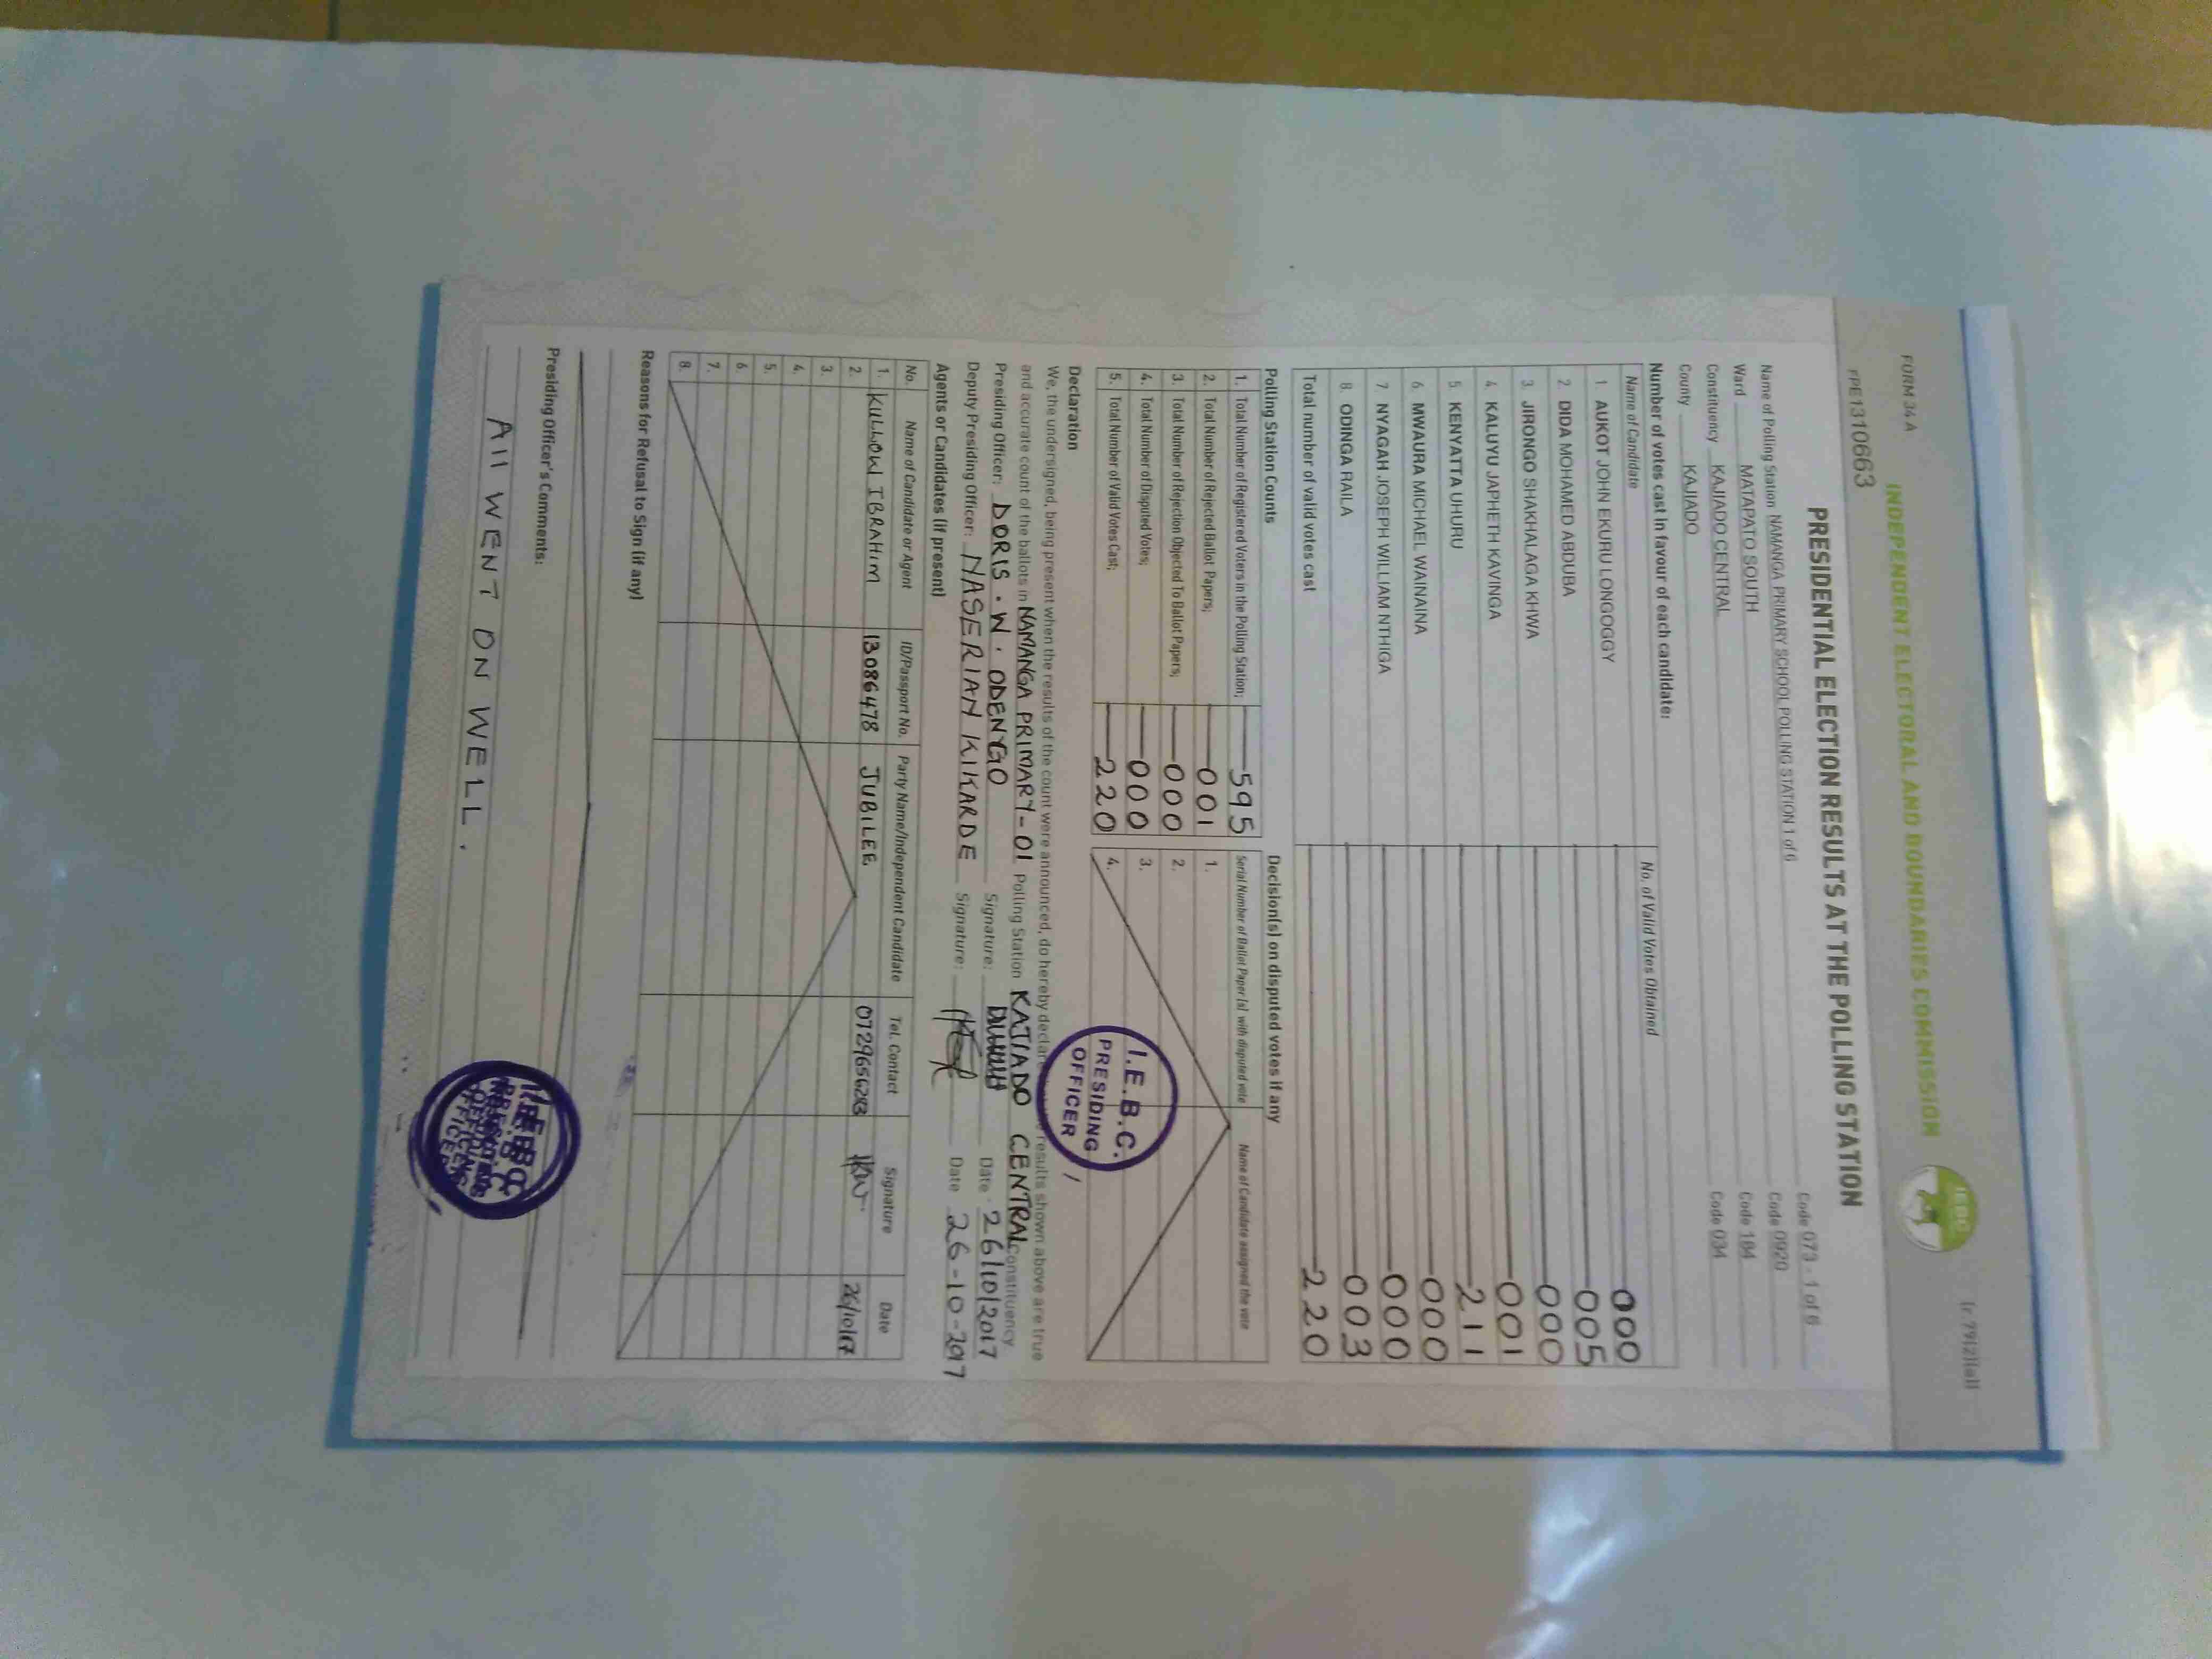 FORM 34 A
(r. 79(2)(a))
INDEPENDENT ELECTORAL AND BOUNDARIES COMMISSION
IEBC
PE1310663
PRESIDENTIAL ELECTION RESULTS AT THE POLLING STATION
Name of Polling Station NAMANGA PRIMARY SCHOOL POLLING STATION 1 of 6 Code 073 - 1 of 6
Ward MATAPATO SOUTH Code 0920
Constituency KAJIADO CENTRAL Code 184
County KAJIADO Code 034
Number of votes cast in favour of each candidate:
Name of Candidate No. of Valid Votes Obtained
1. AUKOT JOHN EKURU LONGOGGY 000
2. DIDA MOHAMED ABDUBA 005
3. JIRONGO SHAKHALAGA KHWA 000
4. KALUYU JAPHETH KAVINGA 001
5 KENYATTA UHURU 211
6 MWAURA MICHAEL WAINAINA 000
7 NYAGAH JOSEPH WILLIAM NTHIGA 000
8. ODINGA RAILA 003
Total number of valid votes cast 220
Polling Station Counts
1. Total Number of Registered Voters in the Polling Station; 595
2. Total Number of Rejected Ballot Papers; 001
3. Total Number of Rejection Objected To Ballot Papers; 000
4. Total Number of Disputed Votes; 000
5. Total Number of Valid Votes Cast; 220
Decision(s) on disputed votes if any
Serial Number of Ballot Paper (s) with disputed vote Name of Candidate assigned the vote
1.
2.
3.
4.
I.E.B.C.
PRESIDING
OFFICER
Declaration
We, the undersigned, being present when the results of the count were announced, do hereby declare results shown above are true
and accurate count of the ballots in NAMANGA PRIMARY-01 Polling Station KAJIADO CENTRAL Constituency
Presiding Officer: DORIS . W . ODENYO Signature: Date 26/10/2017
Deputy Presiding Officer: NASERIAN KIKARDE Signature: Date 26-10-2017
Agents or Candidates (if present)
No. Name of Candidate or Agent ID/Passport No. Party Name/Independent Candidate Tel. Contact Signature Date
1. KULLOW IBRAHIM 13086478 JUBILEE 26/10/17
2.
3.
4.
5.
6.
7.
8.
Reasons for Refusal to Sign (if any)
Presiding Officer's Comments:
All WENT ON WELL.